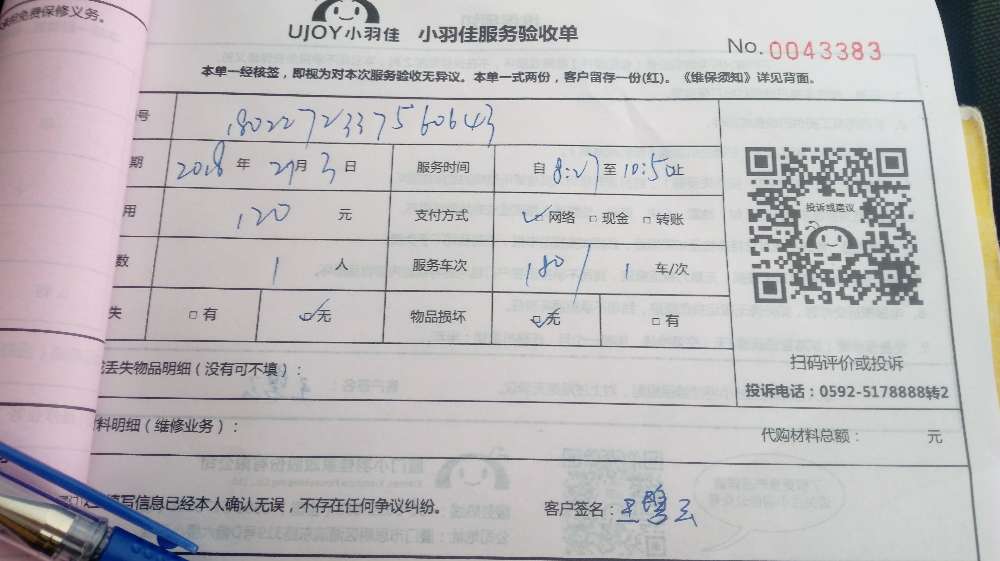 免费保修义务。
UJOY小羽佳 小羽佳服务验收单
No. 0043383
本单一经核签，即视为对本次服务验收无异议。本单一式两份，客户留存一份(红)。《维保须知》详见背面。
号 1802272337560643
期 2018 年 2月 3 日 服务时间 自 8:27 至 10:50止
用 120 元 支付方式 ☑网络 □现金 □转账
数 1 人 服务车次 180 1 车/次
失 □有 ☑无 物品损坏 ☑无 □有
投诉或建议
扫码评价或投诉
投诉电话：0592-5178888转2
丢失物品明细（没有可不填）：
料明细（维修业务）： 代购材料总额： 元
填写信息已经本人确认无误，不存在任何争议纠纷。 客户签名：王碧云